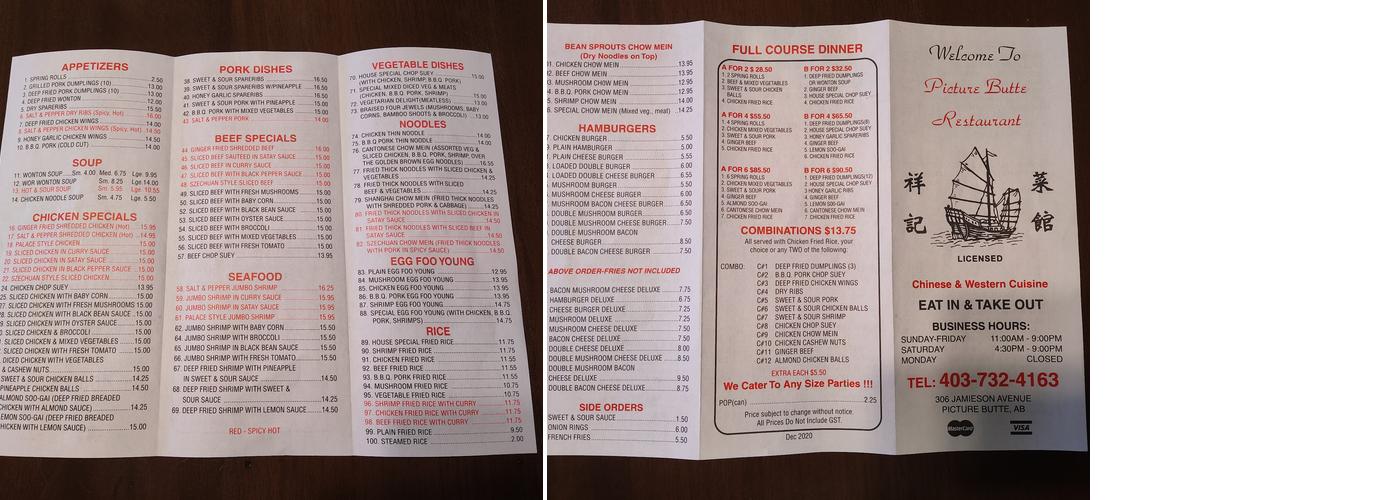 APPETIZERS
1. SPRING ROLLS 2.50
2. GRILLED PORK DUMPLINGS (10) 13.00
3. DEEP FRIED PORK DUMPLINGS (10) 13.00
4. DEEP FRIED WONTON 12.00
5. DRY SPARERIBS 15.50
6. SALT & PEPPER DRY RIBS (Spicy, Hot) 16.00
7. DEEP FRIED CHICKEN WINGS 14.00
8. SALT & PEPPER CHICKEN WINGS (Spicy, Hot) 14.50
9. HONEY GARLIC CHICKEN WINGS 14.50
10. B.B.Q. PORK (COLD CUT) 14.00
SOUP
11. WONTON SOUP Sm. 4.00 Med. 6.75 Lge. 9.95
12. WOR WONTON SOUP Sm. 8.25 Lge. 14.00
13. HOT & SOUR SOUP Sm. 5.95 Lge. 10.55
14. CHICKEN NOODLE SOUP Sm. 4.75 Lge. 5.50
CHICKEN SPECIALS
16. GINGER FRIED SHREDDED CHICKEN (Hot) 15.95
17. SALT & PEPPER SHREDDED CHICKEN (Hot) 14.95
18. PALACE STYLE CHICKEN 15.00
19. SLICED CHICKEN IN CURRY SAUCE 15.00
20. SLICED CHICKEN IN SATAY SAUCE 15.00
21. SLICED CHICKEN IN BLACK PEPPER SAUCE 15.00
22. SZECHUAN STYLE SLICED CHICKEN 15.00
24. CHICKEN CHOP SUEY 13.95
25. SLICED CHICKEN WITH BABY CORN 15.00
27. SLICED CHICKEN WITH FRESH MUSHROOMS 15.00
28. SLICED CHICKEN WITH BLACK BEAN SAUCE 15.00
SLICED CHICKEN WITH OYSTER SAUCE 15.00
SLICED CHICKEN & BROCCOLI 15.00
SLICED CHICKEN & MIXED VEGETABLES 15.00
SLICED CHICKEN WITH FRESH TOMATO 15.00
DICED CHICKEN WITH VEGETABLES
& CASHEW NUTS 15.00
SWEET & SOUR CHICKEN BALLS 14.25
PINEAPPLE CHICKEN BALLS 14.50
ALMOND SOO-GAI (DEEP FRIED BREADED
CHICKEN WITH ALMOND SAUCE) 14.25
LEMON SOO-GAI (DEEP FRIED BREADED
CHICKEN WITH LEMON SAUCE) 15.00
PORK DISHES
38. SWEET & SOUR SPARERIBS 16.50
39. SWEET & SOUR SPARERIBS W/PINEAPPLE 16.50
40. HONEY GARLIC SPARERIBS 16.50
41. SWEET & SOUR PORK WITH PINEAPPLE 15.00
42. B.B.Q. PORK WITH MIXED VEGETABLES 15.00
43. SALT & PEPPER PORK 14.00
BEEF SPECIALS
44. GINGER FRIED SHREDDED BEEF 16.00
45. SLICED BEEF SAUTEED IN SATAY SAUCE 15.00
46. SLICED BEEF IN CURRY SAUCE 15.00
47. SLICED BEEF WITH BLACK PEPPER SAUCE 15.00
48. SZECHUAN STYLE SLICED BEEF 15.00
49. SLICED BEEF WITH FRESH MUSHROOMS 15.00
50. SLICED BEEF WITH BABY CORN 15.00
52. SLICED BEEF WITH BLACK BEAN SAUCE 15.00
53. SLICED BEEF WITH OYSTER SAUCE 15.00
54. SLICED BEEF WITH BROCCOLI 15.00
55. SLICED BEEF WITH MIXED VEGETABLES 15.00
56. SLICED BEEF WITH FRESH TOMATO 15.00
57. BEEF CHOP SUEY 13.95
SEAFOOD
58. SALT & PEPPER JUMBO SHRIMP 16.25
59. JUMBO SHRIMP IN CURRY SAUCE 15.95
60. JUMBO SHRIMP IN SATAY SAUCE 15.95
61. PALACE STYLE JUMBO SHRIMP 15.95
62. JUMBO SHRIMP WITH BABY CORN 15.50
64. JUMBO SHRIMP WITH BROCCOLI 15.50
65. JUMBO SHRIMP IN BLACK BEAN SAUCE 15.50
66. JUMBO SHRIMP WITH FRESH TOMATO 15.50
67. DEEP FRIED SHRIMP WITH PINEAPPLE
IN SWEET & SOUR SAUCE 14.50
68. DEEP FRIED SHRIMP WITH SWEET &
SOUR SAUCE 14.00
69. DEEP FRIED SHRIMP WITH LEMON SAUCE 14.50
RED - SPICY HOT
VEGETABLE DISHES
70. HOUSE SPECIAL CHOP SUEY 15.00
(WITH CHICKEN, SHRIMP, B.B.Q. PORK)
71. SPECIAL MIXED DICED VEG & MEATS
(CHICKEN, B.B.Q. PORK, SHRIMP) 15.00
72. VEGETARIAN DELIGHT(MEATLESS) 13.00
73. BRAISED FOUR JEWELS (MUSHROOMS, BABY
CORNS, BAMBOO SHOOTS & BROCCOLI) 13.00
NOODLES
74. CHICKEN THIN NOODLE 14.00
75. B.B.Q PORK THIN NOODLE 14.00
76. CANTONESE CHOW MEIN (ASSORTED VEG &
SLICED CHICKEN, B.B.Q. PORK, SHRIMP, OVER
THE GOLDEN BROWN EGG NOODLES) 16.55
77. FRIED THICK NOODLES WITH SLICED CHICKEN &
VEGETABLES 14.25
78. FRIED THICK NOODLES WITH SLICED
BEEF & VEGETABLES 14.25
79. SHANGHAI CHOW MEIN (FRIED THICK NOODLES
WITH SHREDDED PORK & CABBAGE) 14.25
80. FRIED THICK NOODLES WITH SLICED CHICKEN IN
SATAY SAUCE 14.50
81. FRIED THICK NOODLES WITH SLICED BEEF IN
SATAY SAUCE 14.50
82. SZECHUAN CHOW MEIN (FRIED THICK NOODLES
WITH PORK IN SPICY SAUCE) 14.50
EGG FOO YOUNG
83. PLAIN EGG FOO YOUNG 12.95
84. MUSHROOM EGG FOO YOUNG 14.00
85. CHICKEN EGG FOO YOUNG 14.00
86. B.B.Q. PORK EGG FOO YOUNG 14.00
87. SHRIMP EGG FOO YOUNG 14.75
88. SPECIAL EGG FOO YOUNG (WITH CHICKEN, B.B.Q.
PORK, SHRIMPS) 14.75
RICE
89. HOUSE SPECIAL FRIED RICE 11.75
90. SHRIMP FRIED RICE 11.75
91. CHICKEN FRIED RICE 11.55
92. BEEF FRIED RICE 11.55
93. B.B.Q. PORK FRIED RICE 11.55
94. MUSHROOM FRIED RICE 10.75
95. VEGETABLE FRIED RICE 10.75
96. SHRIMP FRIED RICE WITH CURRY 11.75
97. CHICKEN FRIED RICE WITH CURRY 11.75
98. BEEF FRIED RICE WITH CURRY 11.75
99. PLAIN FRIED RICE 9.50
100. STEAMED RICE 2.00
BEAN SPROUTS CHOW MEIN
(Dry Noodles on Top)
CHICKEN CHOW MEIN 13.95
BEEF CHOW MEIN 13.95
MUSHROOM CHOW MEIN 12.95
B.B.Q. PORK CHOW MEIN 13.95
SHRIMP CHOW MEIN 14.00
SPECIAL CHOW MEIN (Mixed veg., meat) 14.00
HAMBURGERS
CHICKEN BURGER 5.50
PLAIN HAMBURG 5.00
PLAIN CHEESE BURGER 5.55
LOADED DOUBLE BURGER 6.00
LOADED DOUBLE CHEESE BURGER 6.55
MUSHROOM BURGER 5.50
MUSHROOM CHEESE BURGER 6.00
MUSHROOM BACON CHEESE BURGER 6.50
DOUBLE MUSHROOM BURGER 6.50
DOUBLE MUSHROOM CHEESE BURGER 7.50
DOUBLE MUSHROOM BACON
CHEESE BURGER 8.50
DOUBLE BACON CHEESE BURGER 7.50
ABOVE ORDER-FRIES NOT INCLUDED
BACON MUSHROOM CHEESE DELUXE 7.75
HAMBURGER DELUXE 6.75
CHEESE BURGER DELUXE 7.25
MUSHROOM DELUXE 7.25
MUSHROOM CHEESE DELUXE 7.50
BACON CHEESE DELUXE 7.50
DOUBLE CHEESE DELUXE 8.00
DOUBLE MUSHROOM CHEESE DELUXE 8.50
DOUBLE MUSHROOM BACON
CHEESE DELUXE 9.50
DOUBLE BACON CHEESE DELUXE 8.75
SIDE ORDERS
SWEET & SOUR SAUCE 1.50
ONION RINGS 6.00
FRENCH FRIES 5.50
FULL COURSE DINNER
A FOR 2 $ 28.50
1. 2 SPRING ROLLS
2. BEEF & MIXED VEGETABLES
3. SWEET & SOUR CHICKEN
BALLS
4. CHICKEN FRIED RICE
B FOR 2 $32.50
1. DEEP FRIED DUMPLINGS
OR WONTON SOUP
2. GINGER BEEF
3. HOUSE SPECIAL CHOP SUEY
4. CHICKEN FRIED RICE
A FOR 4 $55.50
1. 4 SPRING ROLLS
2. CHICKEN MIXED VEGETABLES
3. SWEET & SOUR PORK
4. GINGER BEEF
5. CHICKEN FRIED RICE
B FOR 4 $65.50
1. DEEP FRIED DUMPLINGS(8)
2. HOUSE SPECIAL CHOP SUEY
3. HONEY GARLIC SPARERIBS
4. GINGER BEEF
5. LEMON SOO-GAI
6. CHICKEN FRIED RICE
A FOR 6 $85.50
1. 6 SPRING ROLLS
2. CHICKEN MIXED VEGETABLES
3. SWEET & SOUR PORK
4. GINGER BEEF
5. ALMOND SOO-GAI
6. CANTONESE CHOW MEIN
7. CHICKEN FRIED RICE
B FOR 6 $90.50
1. DEEP FRIED DUMPLINGS(12)
2. HOUSE SPECIAL CHOP SUEY
3. HONEY GARLIC RIBS
4. GINGER BEEF
5. LEMON SOO-GAI
6. CANTONESE CHOW MEIN
7. CHICKEN FRIED RICE
COMBINATIONS $13.75
All served with Chicken Fried Rice, your
choice or any TWO of the following:
COMBO: C#1 DEEP FRIED DUMPLINGS (3)
C#2 B.B.Q. PORK CHOP SUEY
C#3 DEEP FRIED CHICKEN WINGS
C#4 DRY RIBS
C#5 SWEET & SOUR PORK
C#6 SWEET & SOUR CHICKEN BALLS
C#7 SWEET & SOUR SHRIMP
C#8 CHICKEN CHOP SUEY
C#9 CHICKEN CHOW MEIN
C#10 CHICKEN CASHEW NUTS
C#11 GINGER BEEF
C#12 ALMOND CHICKEN BALLS
EXTRA EACH $5.50
We Cater To Any Size Parties !!!
POP(can) 2.25
Price subject to change without notice.
All Prices Do Not Include GST.
Dec 2020
Welcome To
Picture Butte
Restaurant
祥記
菜館
LICENSED
Chinese & Western Cuisine
EAT IN & TAKE OUT
BUSINESS HOURS:
SUNDAY-FRIDAY 11:00AM - 9:00PM
SATURDAY 4:30PM - 9:00PM
MONDAY CLOSED
TEL: 403-732-4163
306 JAMIESON AVENUE
PICTURE BUTTE, AB
MasterCard VISA